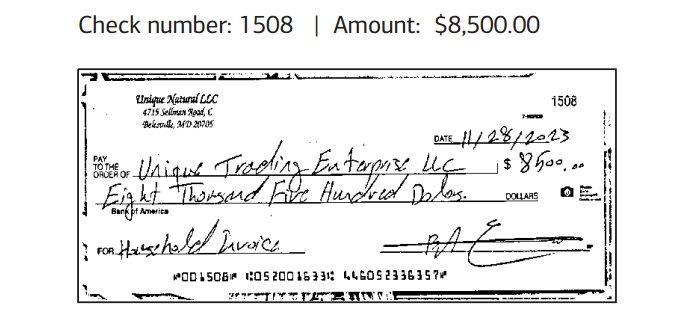 Check number: 1508 | Amount: $8,500.00
Unique Natural LLC
4715 Sellman Road, C
Beltsville, MD 20705
1508
DATE 11/28/2023
PAY TO THE ORDER OF Unique Trading Enterprise LLC $ 8500.00
Eight Thousand Five Hundred Dolars. DOLLARS
Bank of America
FOR Household Invoice
⑈001508⑈ ⑆052001633⑆ 446052336357⑈